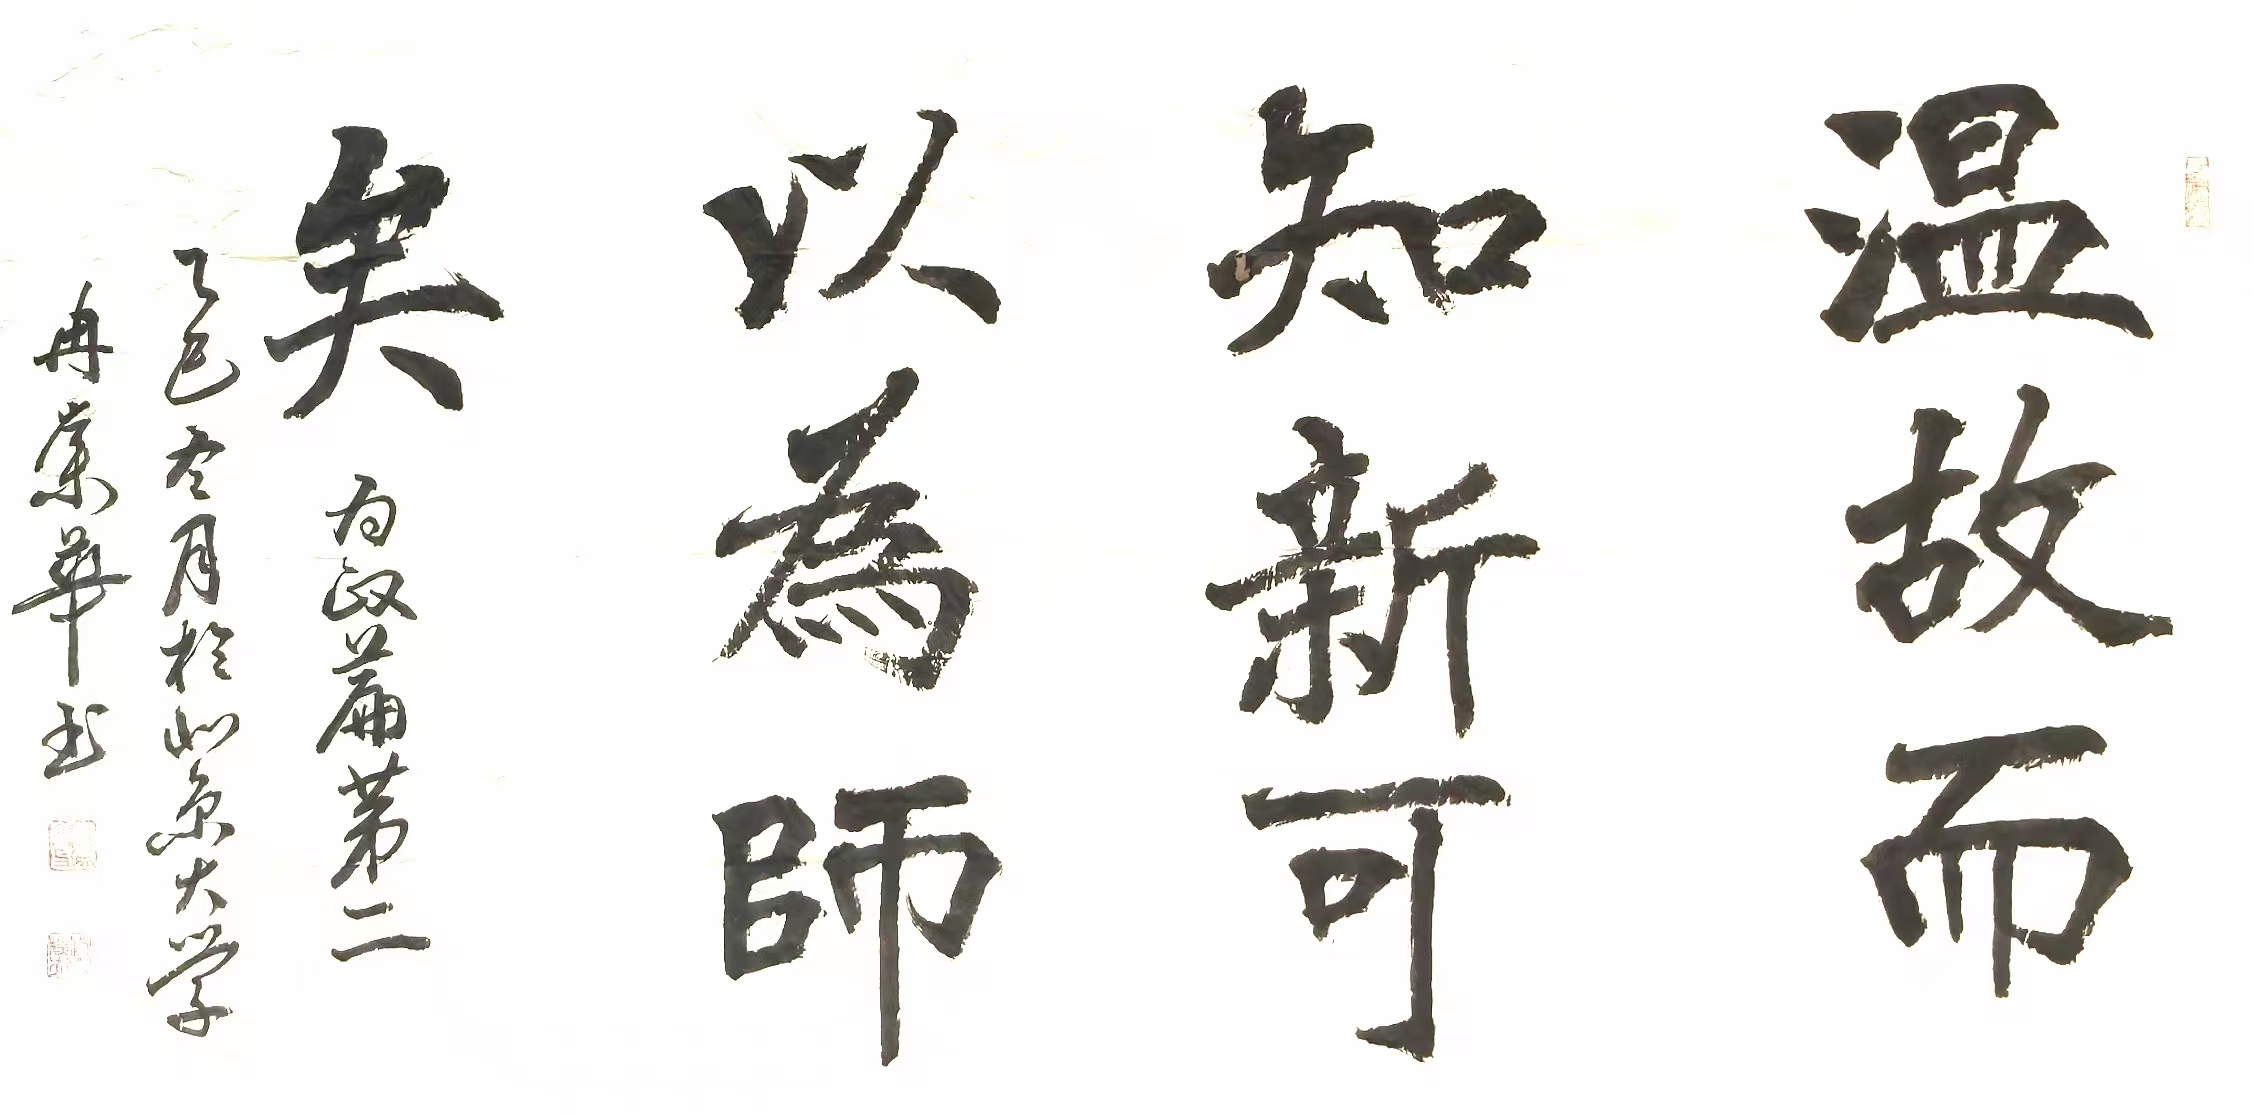 温故而
知新可
以為師
矣
为政篇第二
乙巳冬月於北京大学
冉業華书